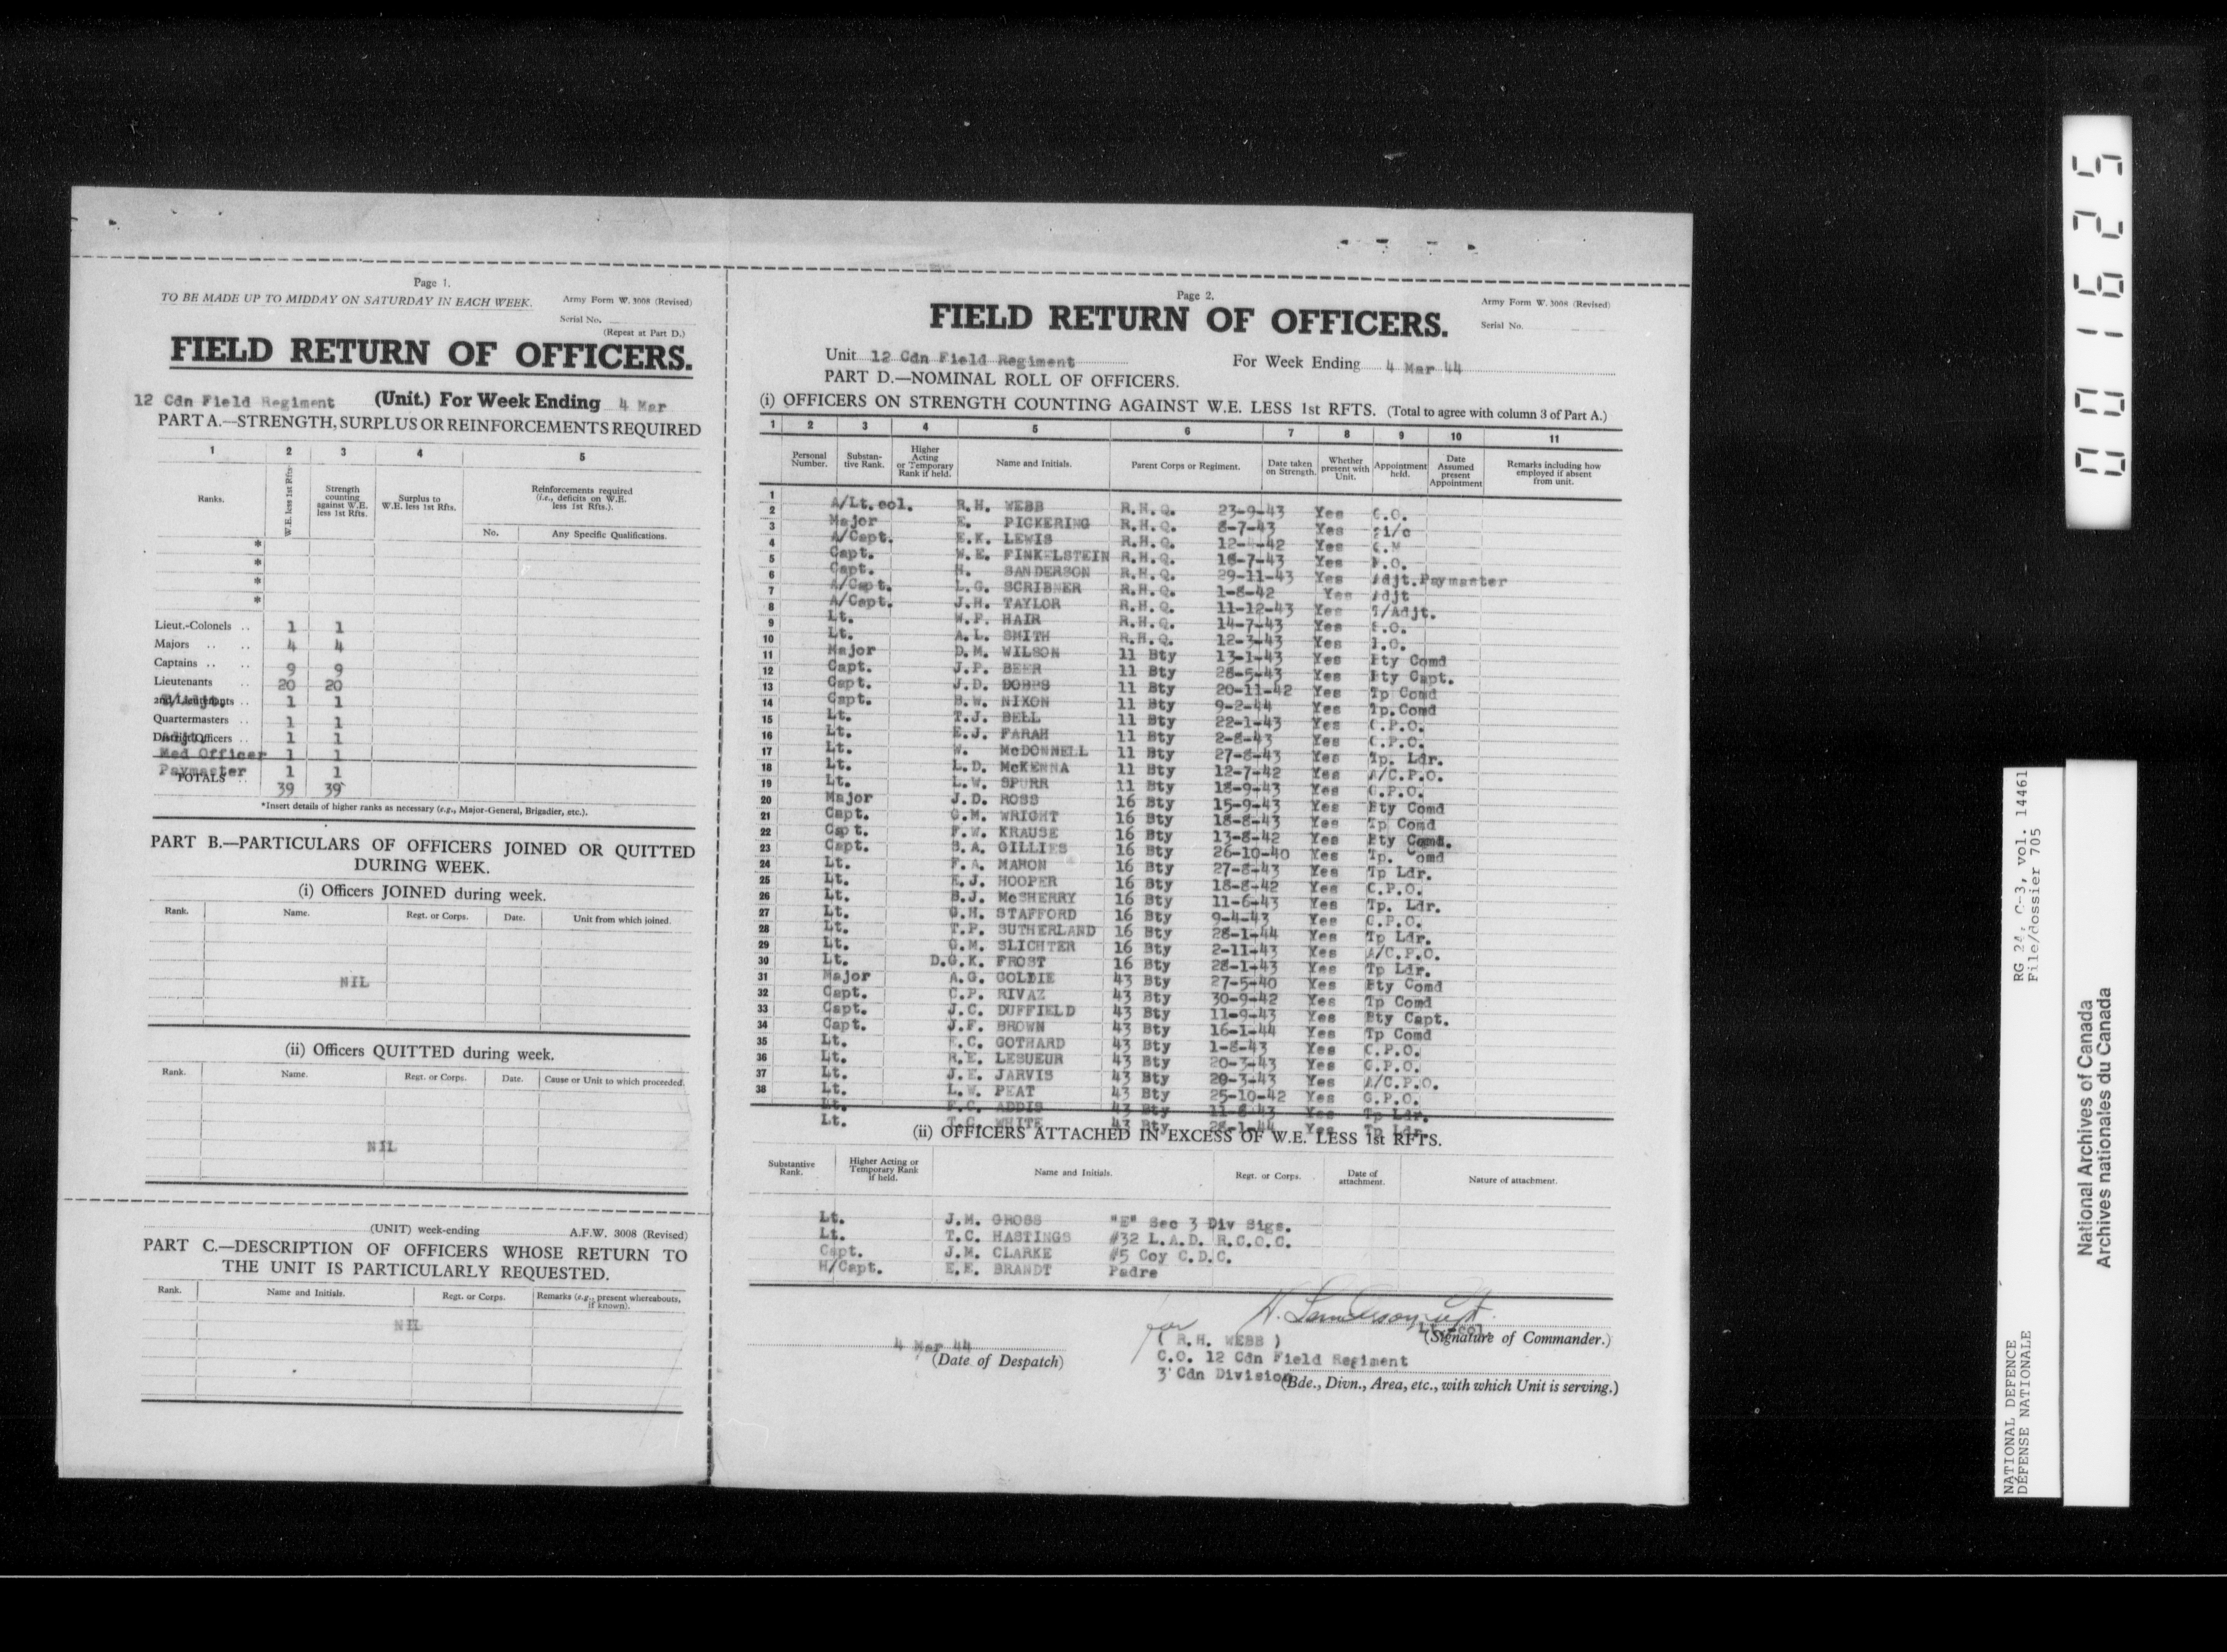 Page 1.
TO BE MADE UP TO MIDDAY ON SATURDAY IN EACH WEEK. Army Form W. 3008 (Revised)
Serial No.
(Repeat at Part D.)
FIELD RETURN OF OFFICERS.
12 Cdn Field Regiment (Unit.) For Week Ending 4 Mar
PART A.—STRENGTH, SURPLUS OR REINFORCEMENTS REQUIRED
1 2 3 4 5
Ranks. W.E. less 1st Rfts. Strength counting against W.E. less 1st Rfts. Surplus to W.E. less 1st Rfts. Reinforcements required (i.e., deficits on W.E. less 1st Rfts.).
No. Any Specific Qualifications.
*
*
*
*
Lieut.-Colonels .. 1 1
Majors .. .. 4 4
Captains .. .. 9 9
Lieutenants .. 20 20
2nd Lieutenants .. 1 1
Quartermasters .. 1 1
District Officers .. 1 1
Med Officer 1 1
Paymaster 1 1
TOTALS .. 39 39
*Insert details of higher ranks as necessary (e.g., Major-General, Brigadier, etc.).
PART B.—PARTICULARS OF OFFICERS JOINED OR QUITTED
DURING WEEK.
(i) Officers JOINED during week.
Rank. Name. Regt. or Corps. Date. Unit from which joined.
NIL
(ii) Officers QUITTED during week.
Rank. Name. Regt. or Corps. Date. Cause or Unit to which proceeded.
NIL
(UNIT) week-ending A.F.W. 3008 (Revised)
PART C.—DESCRIPTION OF OFFICERS WHOSE RETURN TO
THE UNIT IS PARTICULARLY REQUESTED.
Rank. Name and Initials. Regt. or Corps. Remarks (e.g., present whereabouts, if known).
NIL
Page 2.
Army Form W. 3008 (Revised)
FIELD RETURN OF OFFICERS.
Serial No.
Unit 12 Cdn Field Regiment For Week Ending 4 Mar 44
PART D.—NOMINAL ROLL OF OFFICERS.
(i) OFFICERS ON STRENGTH COUNTING AGAINST W.E. LESS 1st RFTS. (Total to agree with column 3 of Part A.)
1 2 3 4 5 6 7 8 9 10 11
Personal Number. Substantive Rank. Higher Acting or Temporary Rank if held. Name and Initials. Parent Corps or Regiment. Date taken on Strength. Whether present with Unit. Appointment held. Date Assumed present Appointment Remarks including how employed if absent from unit.
1 A/Lt.col. R.H. WEBB R.H.Q. 23-9-43 Yes C.O.
2 Major E. PICKERING R.H.Q. 8-7-43 Yes 2i/c
3 A/Capt. E.K. LEWIS R.H.Q. 12-4-42 Yes Q.M
4 Capt. W.E. FINKELSTEIN R.H.Q. 18-7-43 Yes M.O.
5 Capt. H. SANDERSON R.H.Q. 29-11-43 Yes Adjt.Paymaster
6 A/Capt. L.G. SCRIBNER R.H.Q. 1-8-42 Yes Adjt
7 A/Capt. J.H. TAYLOR R.H.Q. 11-12-43 Yes T/Adjt.
8 Lt. W.P. HAIR R.H.Q. 14-7-43 Yes S.O.
9 Lt. A.L. SMITH R.H.Q. 12-3-43 Yes I.O.
10 Major D.M. WILSON 11 Bty 13-1-43 Yes Bty Comd
11 Capt. J.P. BEER 11 Bty 28-5-43 Yes Bty Capt.
12 Capt. J.D. DOBBS 11 Bty 20-11-42 Yes Tp Comd
13 Capt. B.W. NIXON 11 Bty 9-2-44 Yes Tp.Comd
14 Lt. T.J. BELL 11 Bty 22-1-43 Yes C.P.O.
15 Lt. E.J. FARAH 11 Bty 2-8-43 Yes C.P.O.
16 Lt. W. McDONNELL 11 Bty 27-8-43 Yes Tp. Ldr.
17 Lt. L.D. McKENNA 11 Bty 12-7-42 Yes A/C.P.O.
18 Lt. L.W. SPURR 11 Bty 18-9-43 Yes G.P.O.
19 Major J.D. ROSS 16 Bty 15-9-43 Yes Bty Comd
20 Capt. G.M. WRIGHT 16 Bty 18-8-43 Yes Tp Comd
21 Capt. F.W. KRAUSE 16 Bty 13-8-42 Yes Bty Comd.
22 Capt. S.A. GILLIES 16 Bty 26-10-40 Yes Tp. Comd
23 Lt. F.A. MAHON 16 Bty 27-8-43 Yes Tp Ldr.
24 Lt. E.J. HOOPER 16 Bty 18-8-42 Yes C.P.O.
25 Lt. B.J. McSHERRY 16 Bty 11-6-43 Yes Tp. Ldr.
26 Lt. G.H. STAFFORD 16 Bty 9-4-43 Yes G.P.O.
27 Lt. T.P. SUTHERLAND 16 Bty 28-1-44 Yes Tp Ldr.
28 Lt. G.M. SLICHTER 16 Bty 2-11-43 Yes A/C.P.O.
29 Lt. D.G.K. FROST 16 Bty 28-1-43 Yes Tp Ldr.
30 Major A.G. GOLDIE 43 Bty 27-5-40 Yes Bty Comd
31 Capt. C.P. RIVAZ 43 Bty 30-9-42 Yes Tp Comd
32 Capt. J.C. DUFFIELD 43 Bty 11-9-43 Yes Bty Capt.
33 Capt. J.F. BROWN 43 Bty 16-1-44 Yes Tp Comd
34 Lt. E.C. GOTHARD 43 Bty 1-8-43 Yes C.P.O.
35 Lt. R.E. LESUEUR 43 Bty 20-3-43 Yes G.P.O.
36 Lt. J.E. JARVIS 43 Bty 20-3-43 Yes A/C.P.O.
37 Lt. L.W. PEAT 43 Bty 25-10-42 Yes G.P.O.
38 Lt. F.C. ADDIS 43 Bty 11-8-43 Yes Tp Ldr.
Lt. T.G. WHITE 43 Bty 28-1-44 Yes Tp Ldr.
(ii) OFFICERS ATTACHED IN EXCESS OF W.E. LESS 1st RFTS.
Substantive Rank. Higher Acting or Temporary Rank if held. Name and Initials. Regt. or Corps. Date of attachment. Nature of attachment.
Lt. J.M. GROSS "E" Sec 3 Div Sigs.
Lt. T.C. HASTINGS #32 L.A.D. R.C.O.C.
Capt. J.M. CLARKE #5 Coy C.D.C.
H/Capt. E.E. BRANDT Padre
for H. Sanderson Capt.
4 Mar 44 (R.H. WEBB) Lt-col. (Signature of Commander.)
(Date of Despatch) C.O. 12 Cdn Field Regiment
3 Cdn Division (Bde., Divn., Area, etc., with which Unit is serving.)
001625
RG 24, C-3, vol. 14461
File/dossier 705
NATIONAL DEFENCE
DEFENSE NATIONALE
National Archives of Canada
Archives nationales du Canada